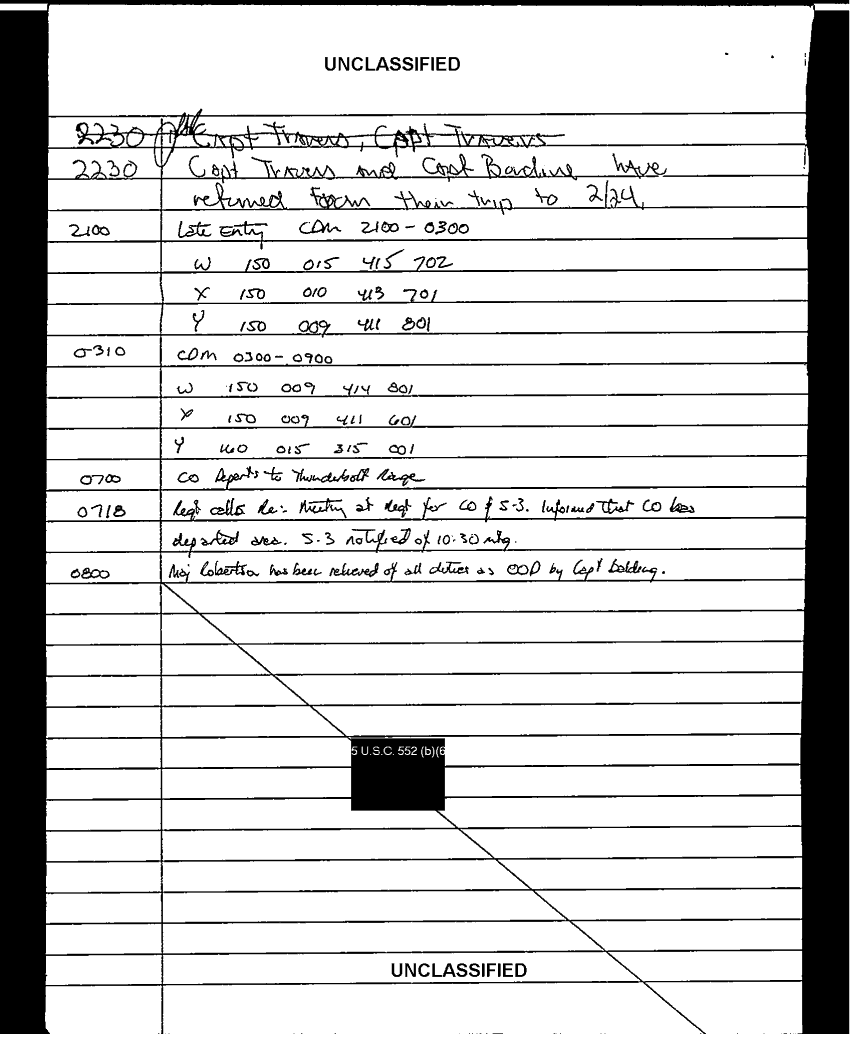 UNCLASSIFIED
2230 Capt Travers, Capt Travers
2230 Capt Travers and Capt have
returned from their trip to 2/24.
2100 Late Entry CDM 2100-0300
W 150 015 415 702
X 150 010 413 701
Y 150 009 411 801
0310 CDM 0300-0900
W 150 009 414 801
X 150 009 411 601
Y 160 015 315 001
0700 CO Departs to Thunderbolt Range
0718 Regt calls Re: Meeting at Regt for CO & S-3. Informed that CO has
departed area. S-3 notified of 10:30 mtg.
0800 Maj Robertson has been relieved of all duties as OOD by Capt Golding.
5 U.S.C. 552 (b)(6
UNCLASSIFIED